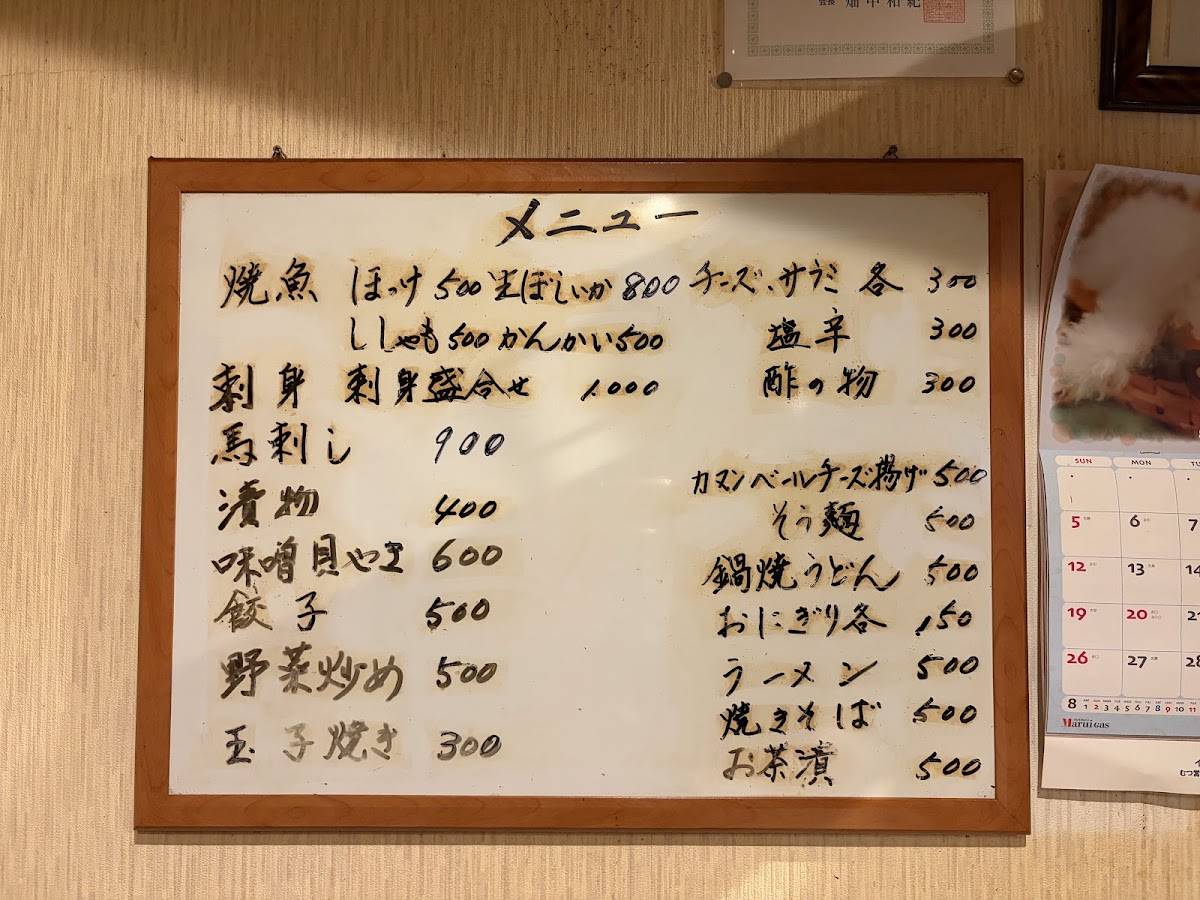 会長 畑中和紀
メニュー
焼魚 ほっけ 500 生ぼしいか 800
ししゃも 500 かんかい 500
刺身 刺身盛合せ 1.000
馬刺し 900
漬物 400
味噌貝やき 600
餃子 500
野菜炒め 500
玉子焼き 300
チーズ、サラミ 各 300
塩辛 300
酢の物 300
カマンベールチーズ揚げ 500
そう麺 500
鍋焼うどん 500
おにぎり各 150
ラーメン 500
焼きそば 500
お茶漬 500
SUN MON TU
5 6 7
12 13 14
19 20 21
26 27 28
8 1 2 3 4 5 6 7 8 9 10 11
Marui Gas
むつ営